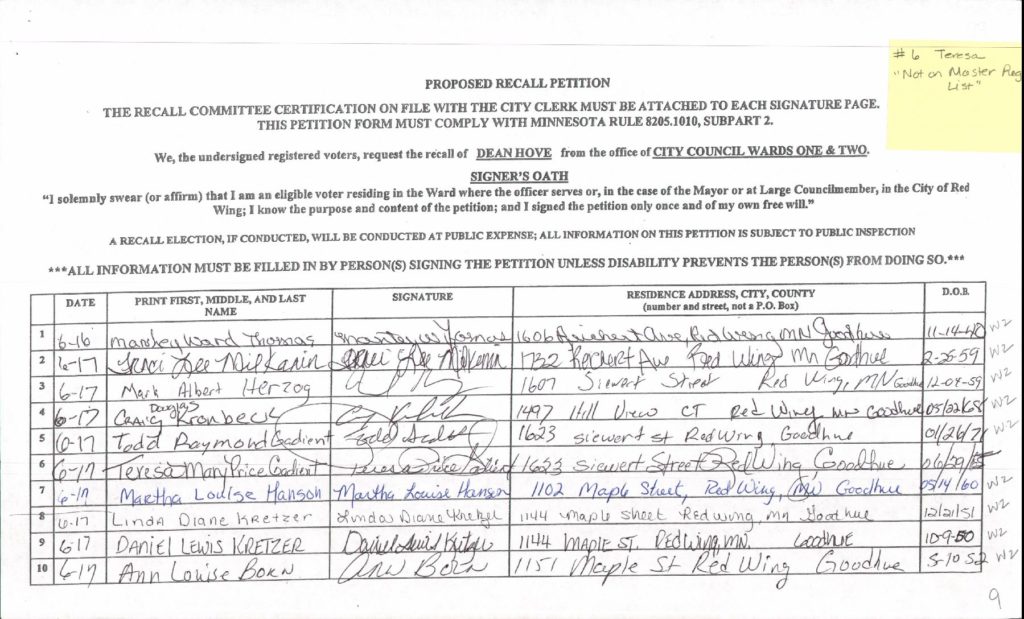 # 6 Teresa
"Not on Master Reg
List"
PROPOSED RECALL PETITION
THE RECALL COMMITTEE CERTIFICATION ON FILE WITH THE CITY CLERK MUST BE ATTACHED TO EACH SIGNATURE PAGE.
THIS PETITION FORM MUST COMPLY WITH MINNESOTA RULE 8205.1010, SUBPART 2.
We, the undersigned registered voters, request the recall of DEAN HOVE from the office of CITY COUNCIL WARDS ONE & TWO.
SIGNER'S OATH
"I solemnly swear (or affirm) that I am an eligible voter residing in the Ward where the officer serves or, in the case of the Mayor or at Large Councilmember, in the City of Red
Wing; I know the purpose and content of the petition; and I signed the petition only once and of my own free will."
A RECALL ELECTION, IF CONDUCTED, WILL BE CONDUCTED AT PUBLIC EXPENSE; ALL INFORMATION ON THIS PETITION IS SUBJECT TO PUBLIC INSPECTION
***ALL INFORMATION MUST BE FILLED IN BY PERSON(S) SIGNING THE PETITION UNLESS DISABILITY PREVENTS THE PERSON(S) FROM DOING SO.***
DATE PRINT FIRST, MIDDLE, AND LAST NAME SIGNATURE RESIDENCE ADDRESS, CITY, COUNTY (number and street, not a P.O. Box) D.O.B.
1 6-16 Ward Thomas 1606 Ave, Red Wing, MN Goodhue 11-14-40 W2
2 6-17 Lee Milkanin Lee Milkanin 1732 Reichert Av Red Wing Mn Goodhue 2-26-59 W2
3 6-17 Mark Albert Herzog 1607 Siewert Street Red Wing, MN Goodhue 12-04-59 W2
4 6-17 Craig Douglas Kronbeck 1497 Hill View CT Red Wing MN Goodhue 05/22/68 W2
5 6-17 Todd Raymond Gadient 1623 Siewert St Red Wing Goodhue 01/26/71 W2
6 6-17 Teresa Mary Price Gadient Teresa Price Gadient 1623 Siewert Street Red Wing Goodhue 06/29/75
7 6-17 Martha Louise Hanson Martha Louise Hanson 1102 Maple Street, Red Wing, MN Goodhue 05/14/60 W2
8 6-17 Linda Diane Kretzer Linda Diane Kretzer 1144 Maple Street Red wing, mn Goodhue 12/21/51 W2
9 6-17 DANIEL LEWIS KRETZER Daniel Lewis Kretzer 1144 MAPLE ST. RED WING, MN. GOODHUE 10-9-50 W2
10 6-17 Ann Louise Born Ann Born 1151 Maple St Red Wing Goodhue 5-10 52 W2
9